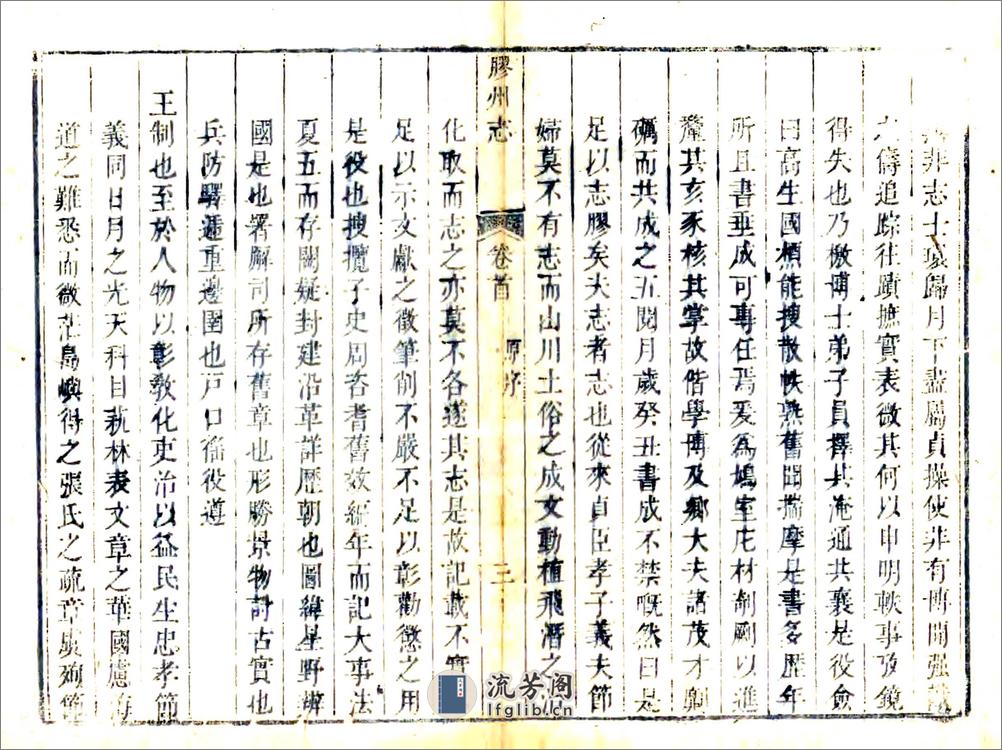 非志士墟歸月下盡屬貞操使非有博聞强
儔追踪往蹟摭實表微其何以申明軼事攷鏡
得失也乃檄博士弟子員擇其淹通共襄是役僉
曰高生國楨能搜散帙熟舊聞揣摩是書多歷年
所且書垂成可專任焉爰爲鳩室庀材剞劂以進
釐其亥豕核其掌故偕學博及鄉大夫諸茂才
礪而共成之五閱月歲癸丑書成不禁慨然曰是
足以志膠矣夫志者志也從來貞臣孝子義夫節
婦莫不有志而山川土俗之成文動植飛潛之
膠州志
卷首
原序
三
化取而志之亦莫不各遂其志是故記載不實
足以示文獻之徵筆削不嚴不足以彰勸懲之用
是役也搜攬子史周咨耆舊效編年而記大事法
夏五而存闕疑封建沿革詳歷朝也圖緯星野辨
國是也署廨司所存舊章也形勝景物討古實也
兵防驛遞重邊圉也戸口徭役遵
王制也至於人物以彰敎化吏治以益民生忠孝節
義同日月之光天科目萟林表文章之華國慮海
道之難悉而微茫島嶼得之張氏之疏章煐殉節
流芳阁
lfglib.cn